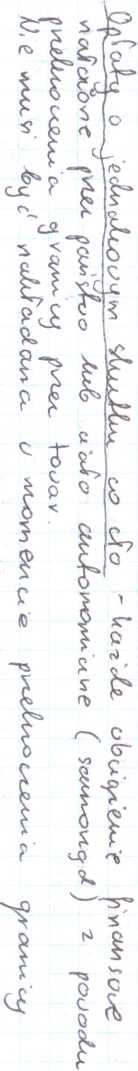 Opłaty o jednakowym skutku co do - każde obciążenie finansowe
nałożone przez państwo lub ciało autonomiczne (samorząd) z powodu
przekroczenia granicy przez towar.
Nie musi być nakładana w momencie przekroczenia granicy